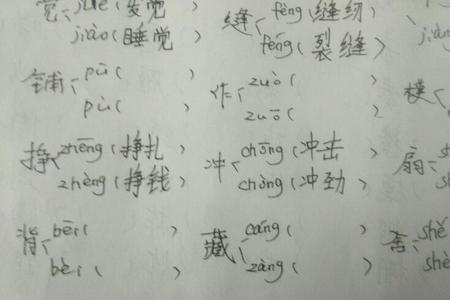 觉 jué (发觉 缝 féng (缝纫)
jiào (睡觉) fèng (裂缝)
铺 pū ( ) 作 zuò ( ) 模
pù ( ) zuō ( )
挣 zhēng (挣扎) 冲 chōng (冲击) 扇
zhèng (挣钱) chòng (冲劲)
背 bēi ( ) 藏 cáng ( ) 舍 shě
bèi ( ) zàng ( ) shè